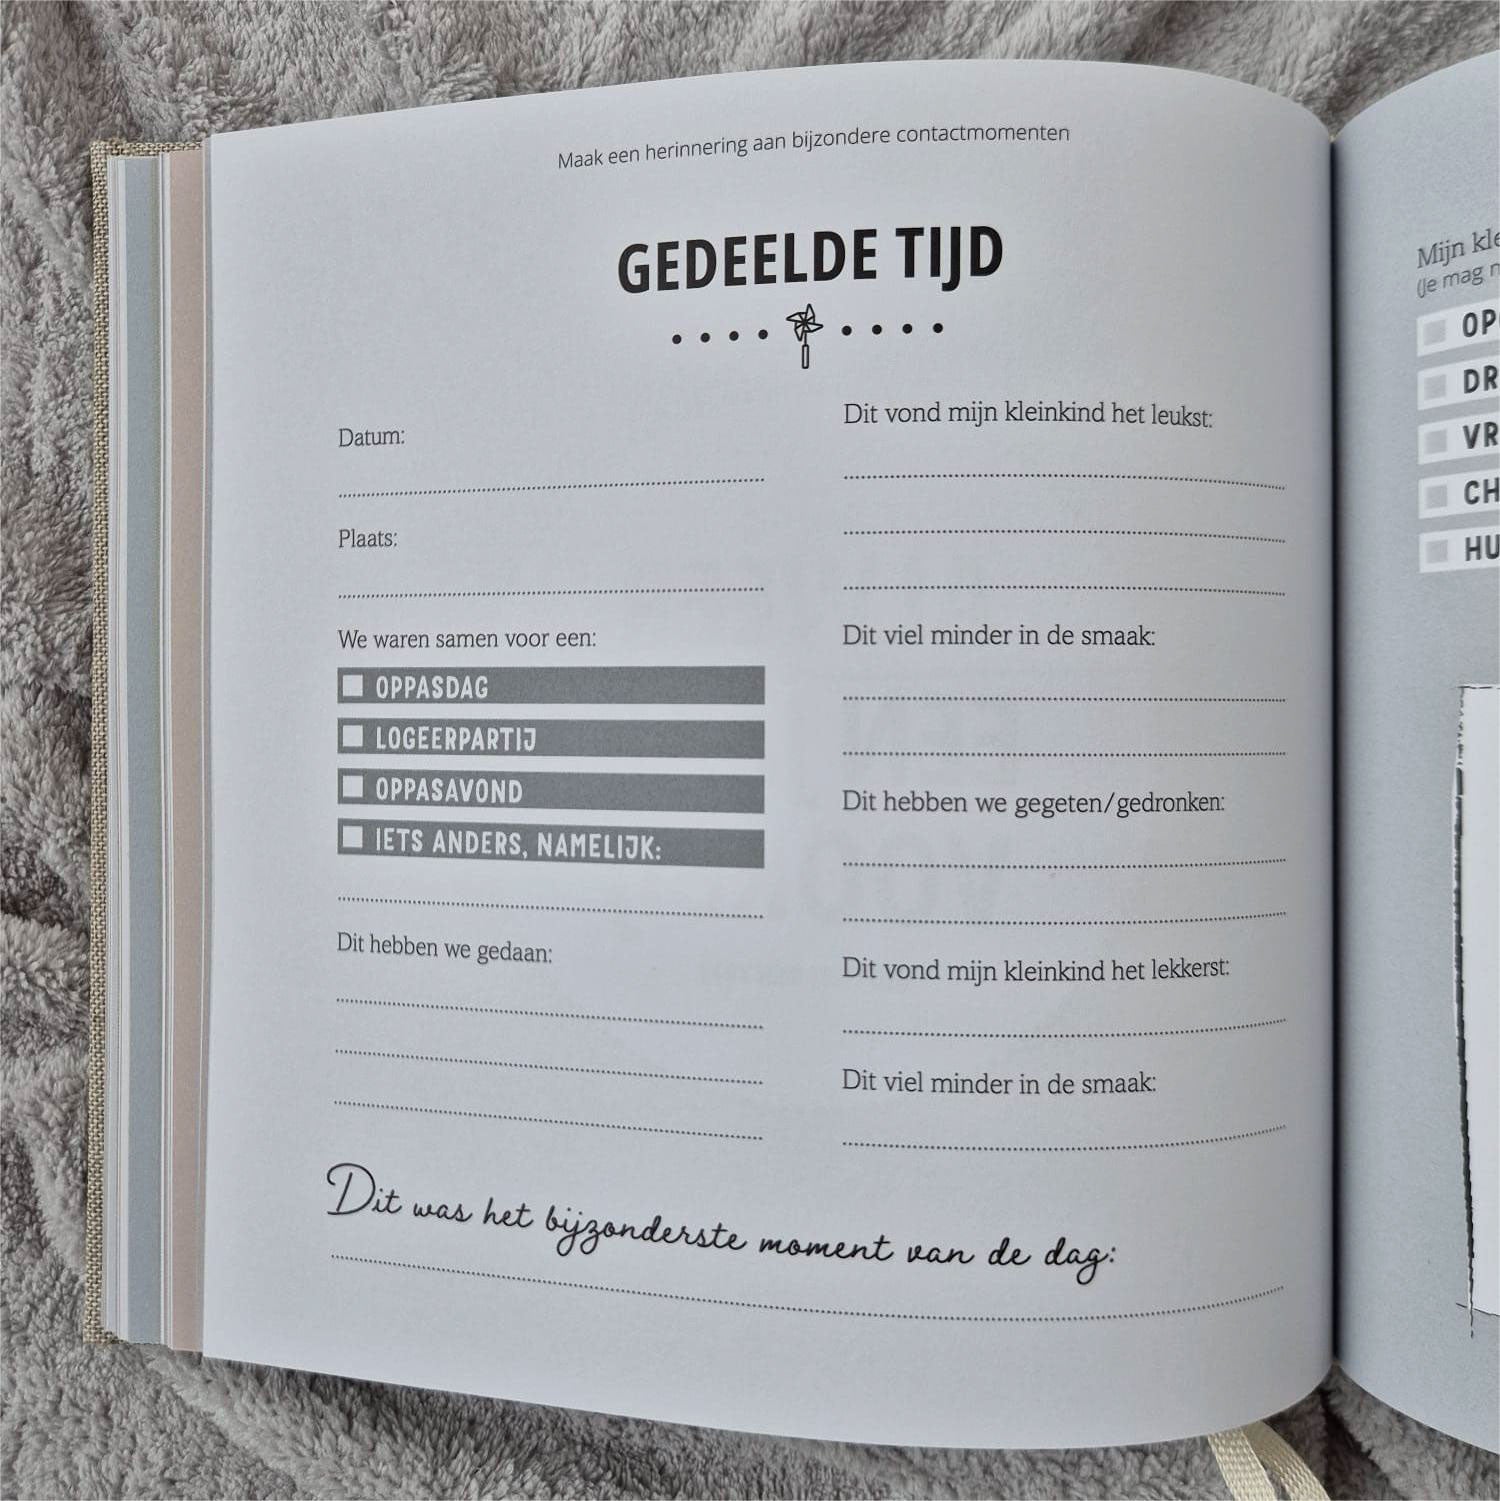 Maak een herinnering aan bijzondere contactmomenten
GEDEELDE TIJD
Datum:
Plaats:
We waren samen voor een:
OPPASDAG
LOGEERPARTIJ
OPPASAVOND
IETS ANDERS, NAMELIJK:
Dit hebben we gedaan:
Dit vond mijn kleinkind het leukst:
Dit viel minder in de smaak:
Dit hebben we gegeten/gedronken:
Dit vond mijn kleinkind het lekkerst:
Dit viel minder in de smaak:
Dit was het bijzonderste moment van de dag:
Mijn
(Je mag